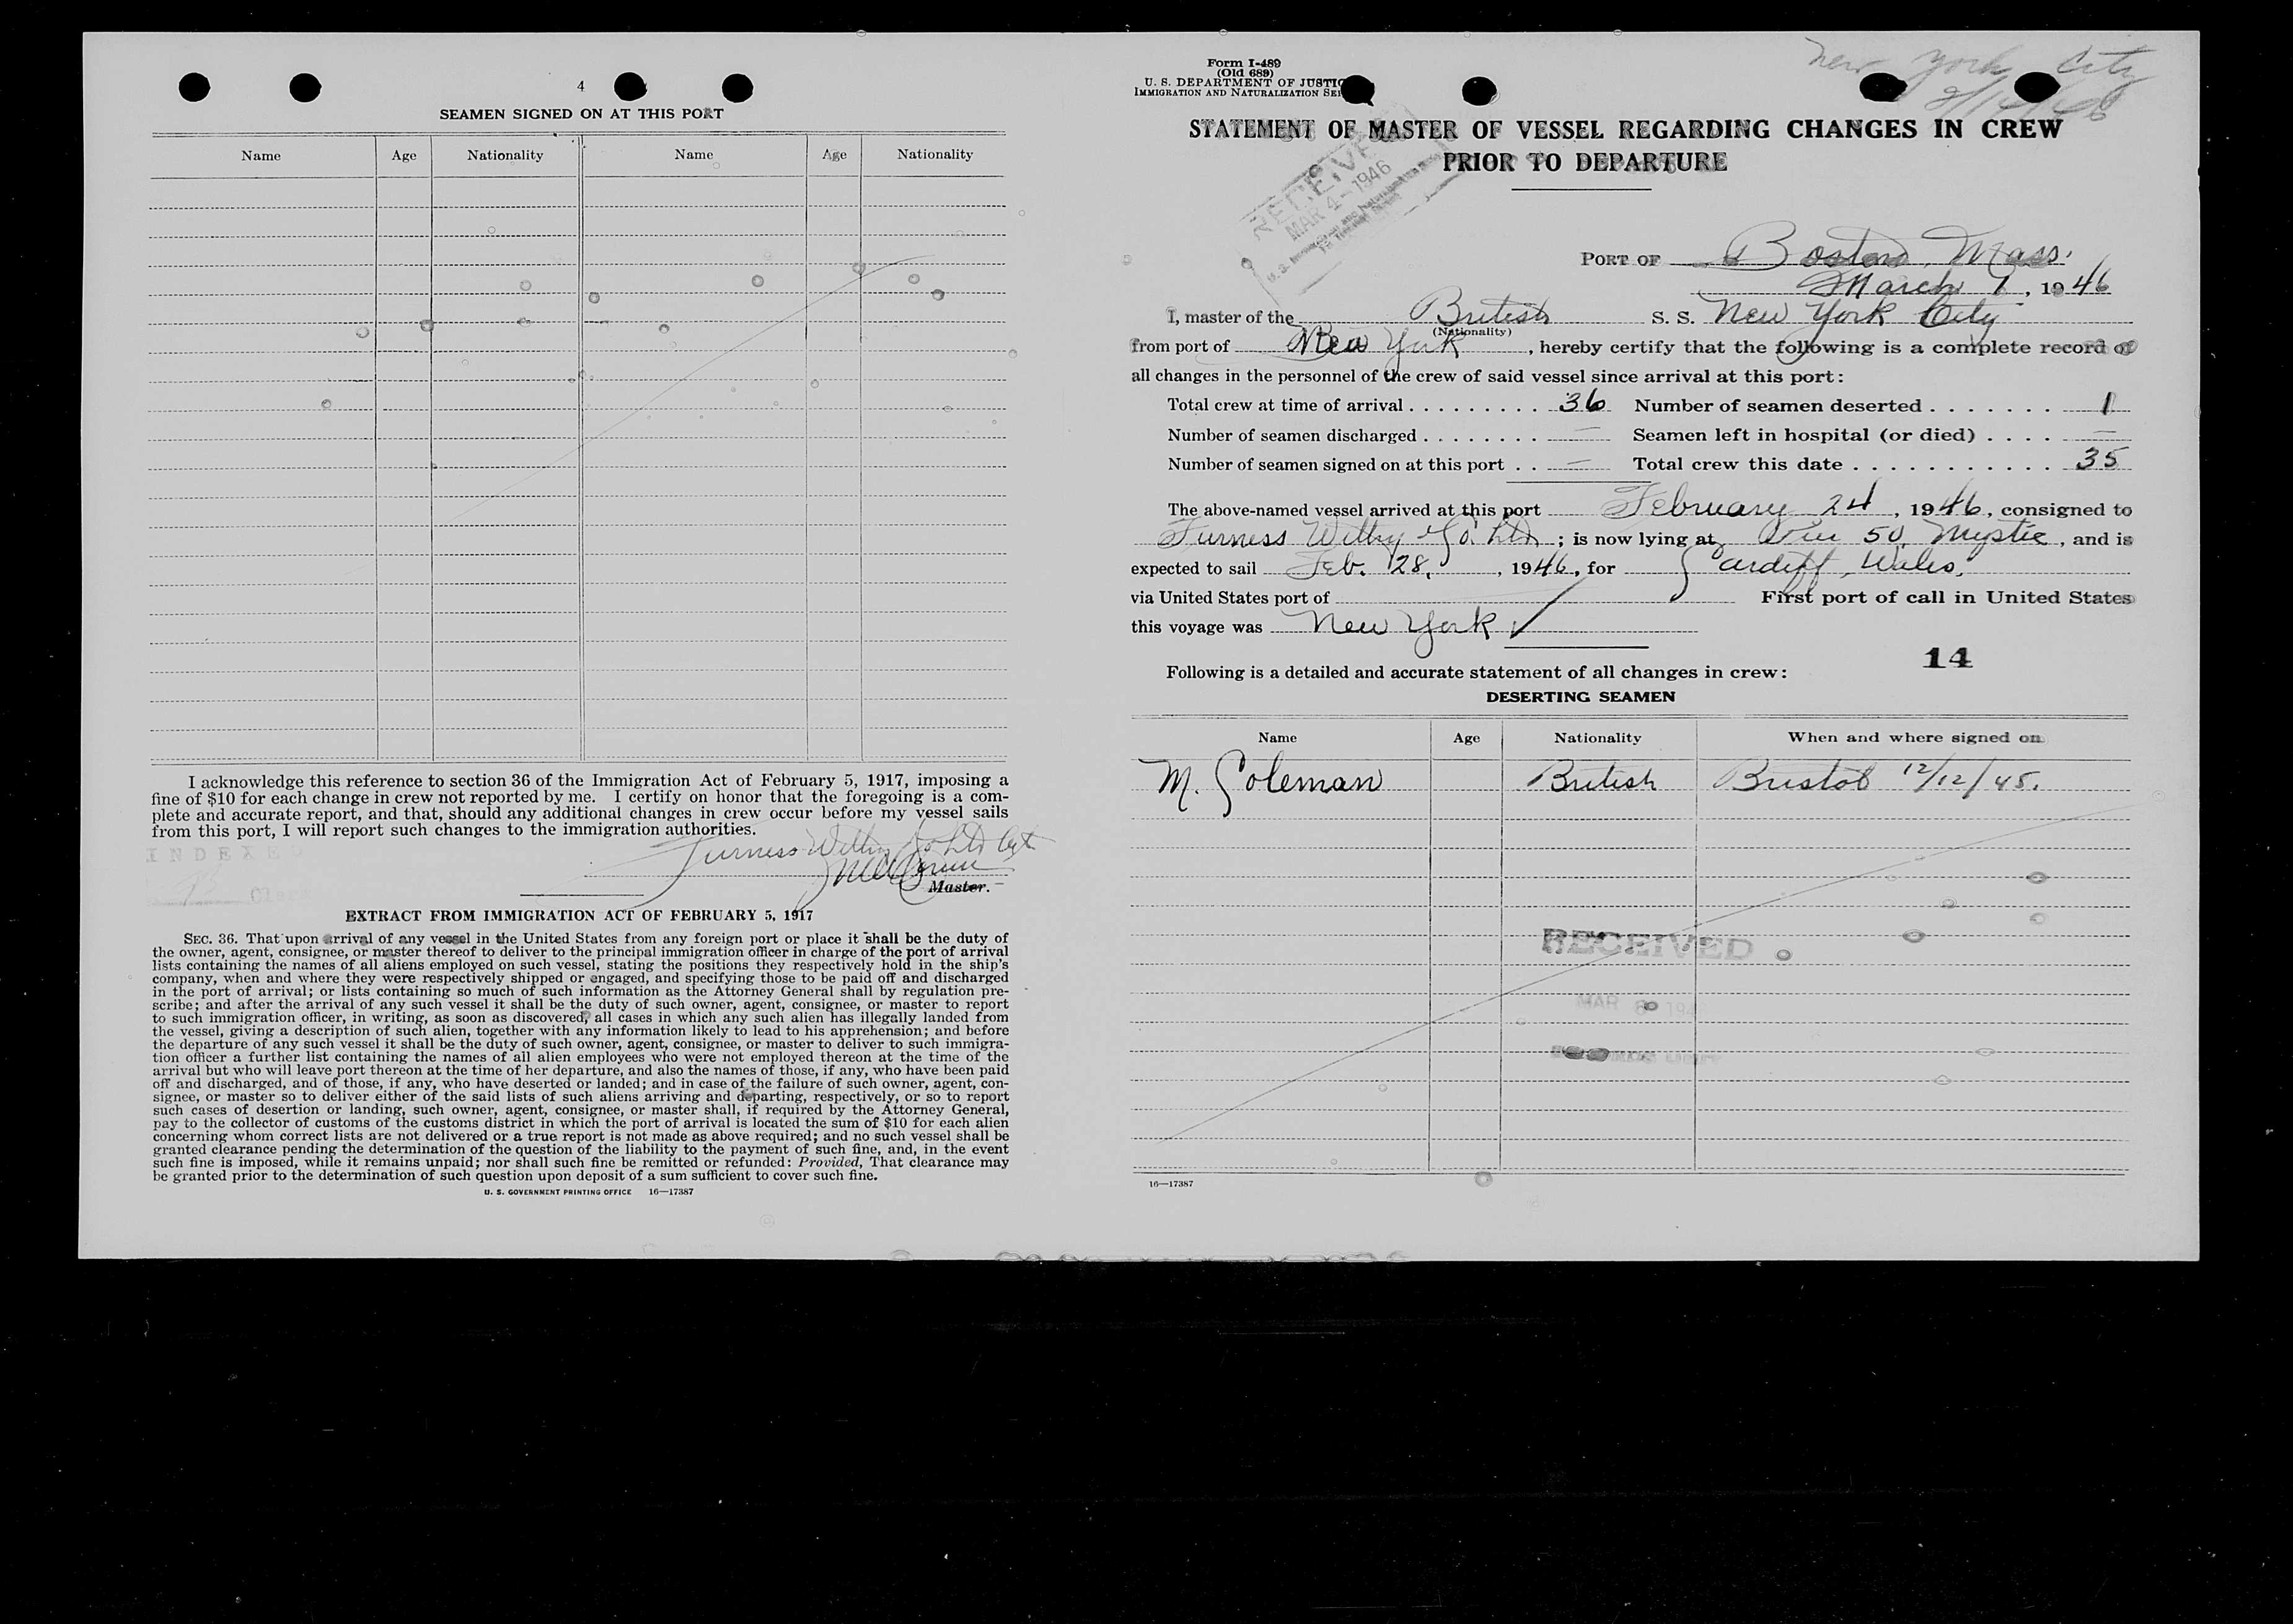 4
SEAMEN SIGNED ON AT THIS PORT
Name Age Nationality Name Age Nationality
I acknowledge this reference to section 36 of the Immigration Act of February 5, 1917, imposing a
fine of $10 for each change in crew not reported by me. I certify on honor that the foregoing is a com-
plete and accurate report, and that, should any additional changes in crew occur before my vessel sails
from this port, I will report such changes to the immigration authorities.
INDEXED
Furness Withy & Co. Ltd Agt
Master.
EXTRACT FROM IMMIGRATION ACT OF FEBRUARY 5, 1917
SEC. 36. That upon arrival of any vessel in the United States from any foreign port or place it shall be the duty of
the owner, agent, consignee, or master thereof to deliver to the principal immigration officer in charge of the port of arrival
lists containing the names of all aliens employed on such vessel, stating the positions they respectively hold in the ship's
company, when and where they were respectively shipped or engaged, and specifying those to be paid off and discharged
in the port of arrival; or lists containing so much of such information as the Attorney General shall by regulation pre-
scribe; and after the arrival of any such vessel it shall be the duty of such owner, agent, consignee, or master to report
to such immigration officer, in writing, as soon as discovered, all cases in which any such alien has illegally landed from
the vessel, giving a description of such alien, together with any information likely to lead to his apprehension; and before
the departure of any such vessel it shall be the duty of such owner, agent, consignee, or master to deliver to such immigra-
tion officer a further list containing the names of all alien employees who were not employed thereon at the time of the
arrival but who will leave port thereon at the time of her departure, and also the names of those, if any, who have been paid
off and discharged, and of those, if any, who have deserted or landed; and in case of the failure of such owner, agent, con-
signee, or master so to deliver either of the said lists of such aliens arriving and departing, respectively, or so to report
such cases of desertion or landing, such owner, agent, consignee, or master shall, if required by the Attorney General,
pay to the collector of customs of the customs district in which the port of arrival is located the sum of $10 for each alien
concerning whom correct lists are not delivered or a true report is not made as above required; and no such vessel shall be
granted clearance pending the determination of the question of the liability to the payment of such fine, and, in the event
such fine is imposed, while it remains unpaid; nor shall such fine be remitted or refunded: Provided, That clearance may
be granted prior to the determination of such question upon deposit of a sum sufficient to cover such fine.
U. S. GOVERNMENT PRINTING OFFICE 16—17387
Form I-489
(Old 689)
U. S. DEPARTMENT OF JUSTIC
IMMIGRATION AND NATURALIZATION SER
New York City
2/14/46
STATEMENT OF MASTER OF VESSEL REGARDING CHANGES IN CREW
PRIOR TO DEPARTURE
RECEIVED
MAR 4-1946
PORT OF Boston, Mass.
March 1, 1946
I, master of the British S. S. New York City
(Nationality)
from port of New York, hereby certify that the following is a complete record of
all changes in the personnel of the crew of said vessel since arrival at this port:
Total crew at time of arrival . . . . . . . . . 36 Number of seamen deserted . . . . . . . 1
Number of seamen discharged . . . . . . . . — Seamen left in hospital (or died) . . . . —
Number of seamen signed on at this port . . — Total crew this date . . . . . . . . . . . . 35
The above-named vessel arrived at this port February 24, 1946, consigned to
Furness Withy & Co. Ltd.; is now lying at Pier 50, Mystic, and is
expected to sail Feb. 28, 1946, for Cardiff, Wales.
via United States port of First port of call in United States
this voyage was New York ✓
Following is a detailed and accurate statement of all changes in crew: 14
DESERTING SEAMEN
Name Age Nationality When and where signed on
M. Coleman British Bristol 12/12/45.
RECEIVED
MAR 8 194
16—17387